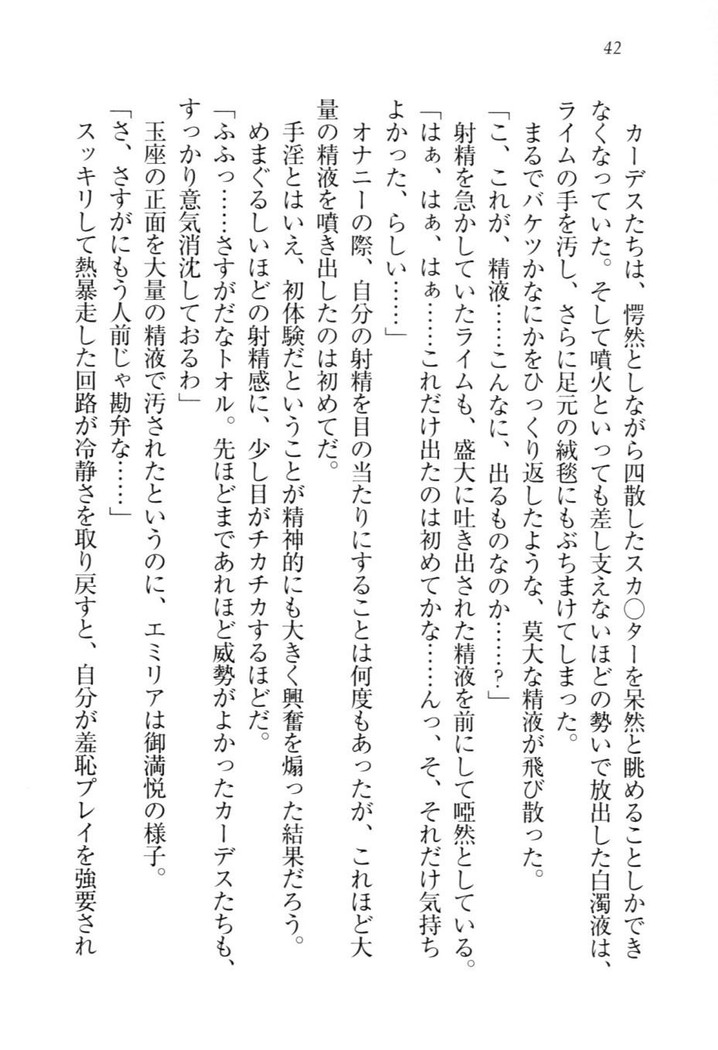 42
カーデスたちは、愕然としながら四散したスカ◯ターを呆然と眺めることしかでき
なくなっていた。そして噴火といっても差し支えないほどの勢いで放出した白濁液は、
ライムの手を汚し、さらに足元の絨毯にもぶちまけてしまった。
まるでバケツかなにかをひっくり返したような、莫大な精液が飛び散った。
「こ、これが、精液……こんなに、出るものなのか……?」
射精を急かしていたライムも、盛大に吐き出された精液を前にして啞然としている。
「はぁ、はぁ、はぁ……これだけ出たのは初めてかな……んっ、そ、それだけ気持ち
よかった、らしい……」
オナニーの際、自分の射精を目の当たりにすることは何度もあったが、これほど大
量の精液を噴き出したのは初めてだ。
手淫とはいえ、初体験だということが精神的にも大きく興奮を煽った結果だろう。
めまぐるしいほどの射精感に、少し目がチカチカするほどだ。
「ふふっ……さすがだなトオル。先ほどまであれほど威勢がよかったカーデスたちも、
すっかり意気消沈しておるわ」
玉座の正面を大量の精液で汚されたというのに、エミリアは御満悦の様子。
「さ、さすがにもう人前じゃ勘弁な……」
スッキリして熱暴走した回路が冷静さを取り戻すと、自分が羞恥プレイを強要され